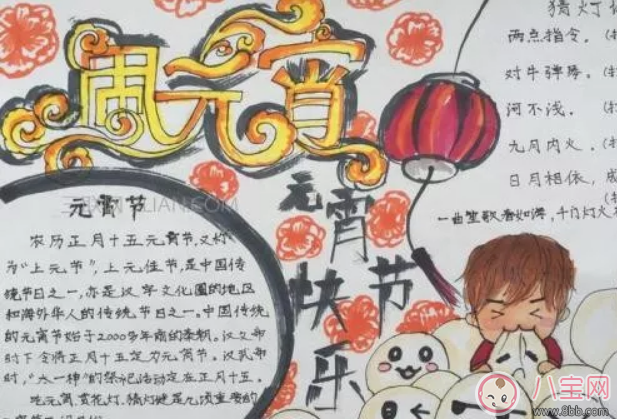 闹元宵
元宵节
农历正月十五元宵节,又称
为"上元节",上元佳节,是中国传
统节日之一,亦是汉字文化圈的地区
和海外华人的传统节日之一。中国传统
的元宵节始于2000多年前的秦朝。汉文帝
时下令将正月十五定为元宵节。汉武帝
时,"太一神"的祭祀活动定在正月十五。
吃元宵、赏花灯、猜灯谜是几项重要的
元宵节
快乐
猜灯
两点指令。(打
对牛弹琴。(打
河不浅。(打
九月内火。(打
日月相依,成
一曲笙歌春如海,千门灯火
八宝网
www.8bb.com